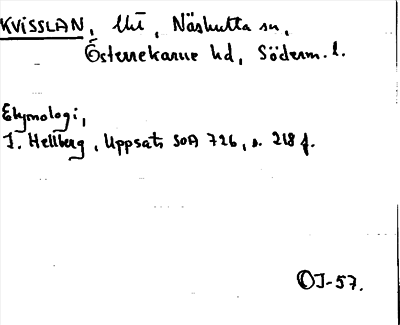 KVISSLAN, Näshulta sn,
Österrekarne hd, Söderm. l.
Etymologi,
I. Hellberg, Uppsats SOA 726, s. 218 f.
OJ-57.